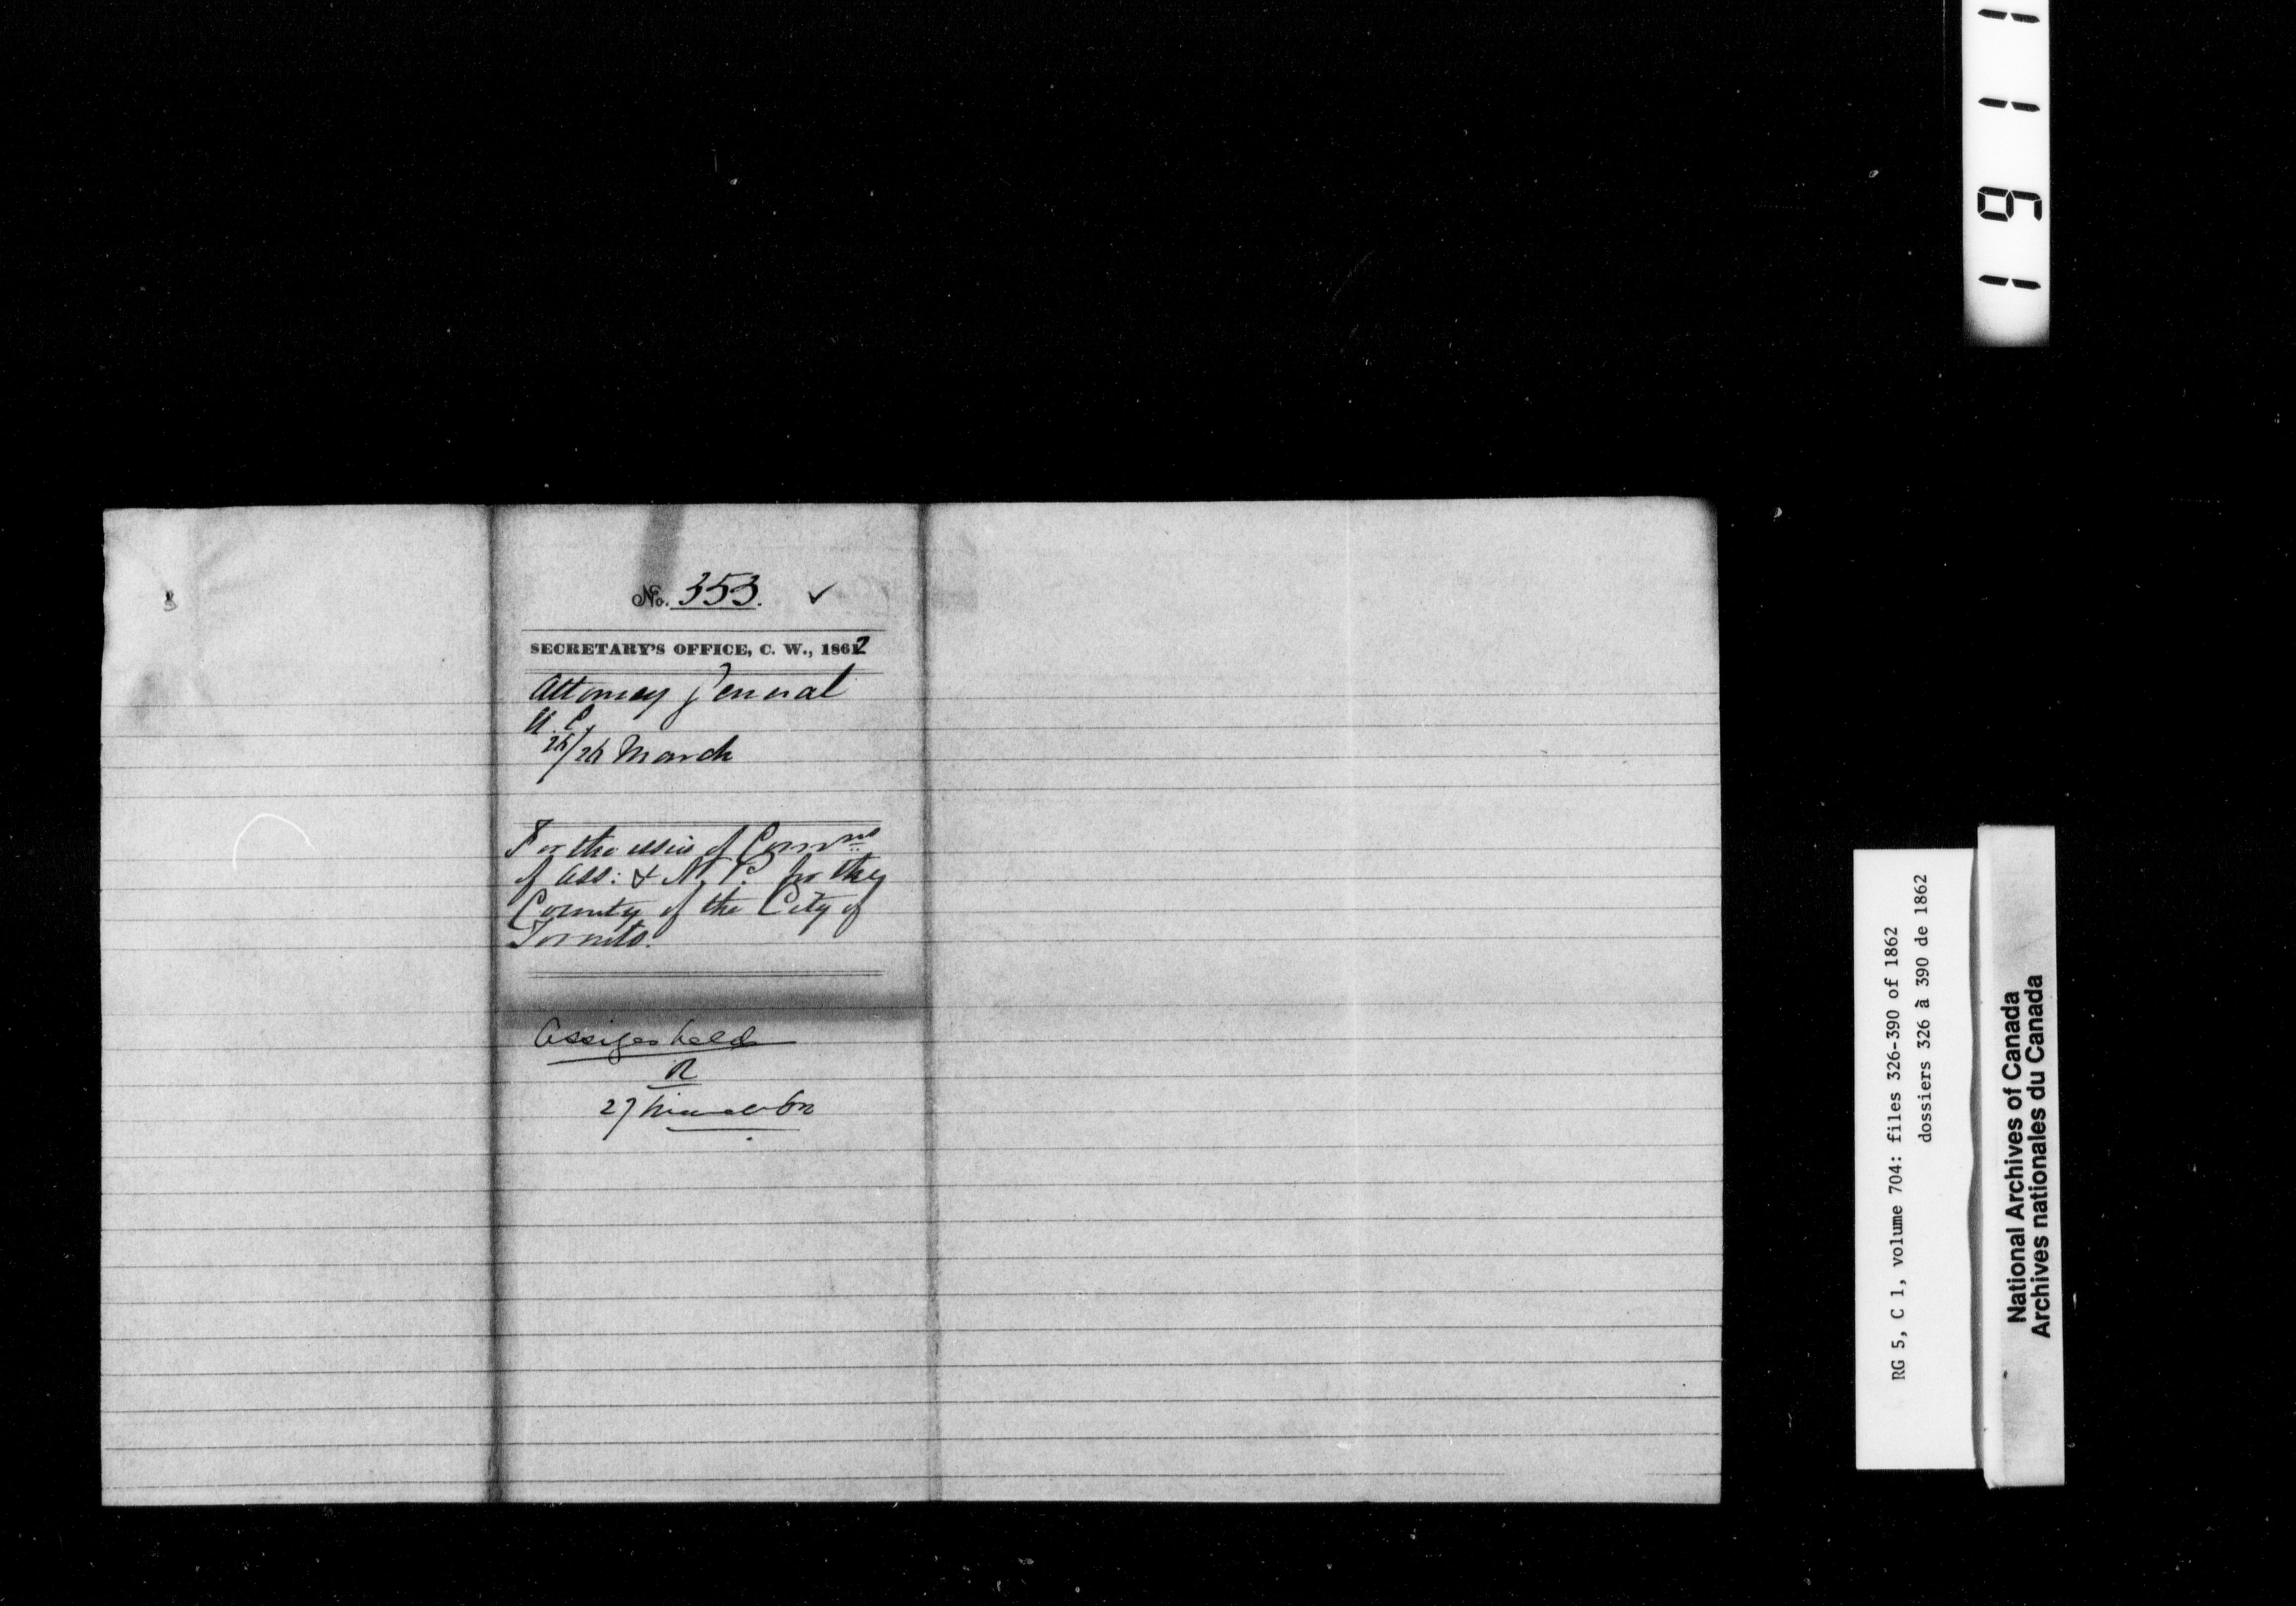 No. 353. ✓
SECRETARY'S OFFICE, C. W., 1862
Attorney General
U. C.
25/26 March
For the issue of Comns
of Ass: & N. P. for the
County of the City of
Toronto.
Assizes held
R
27 March 62
1911
RG 5, C 1, volume 704: files 326-390 of 1862
dossiers 326 à 390 de 1862
National Archives of Canada
Archives nationales du Canada